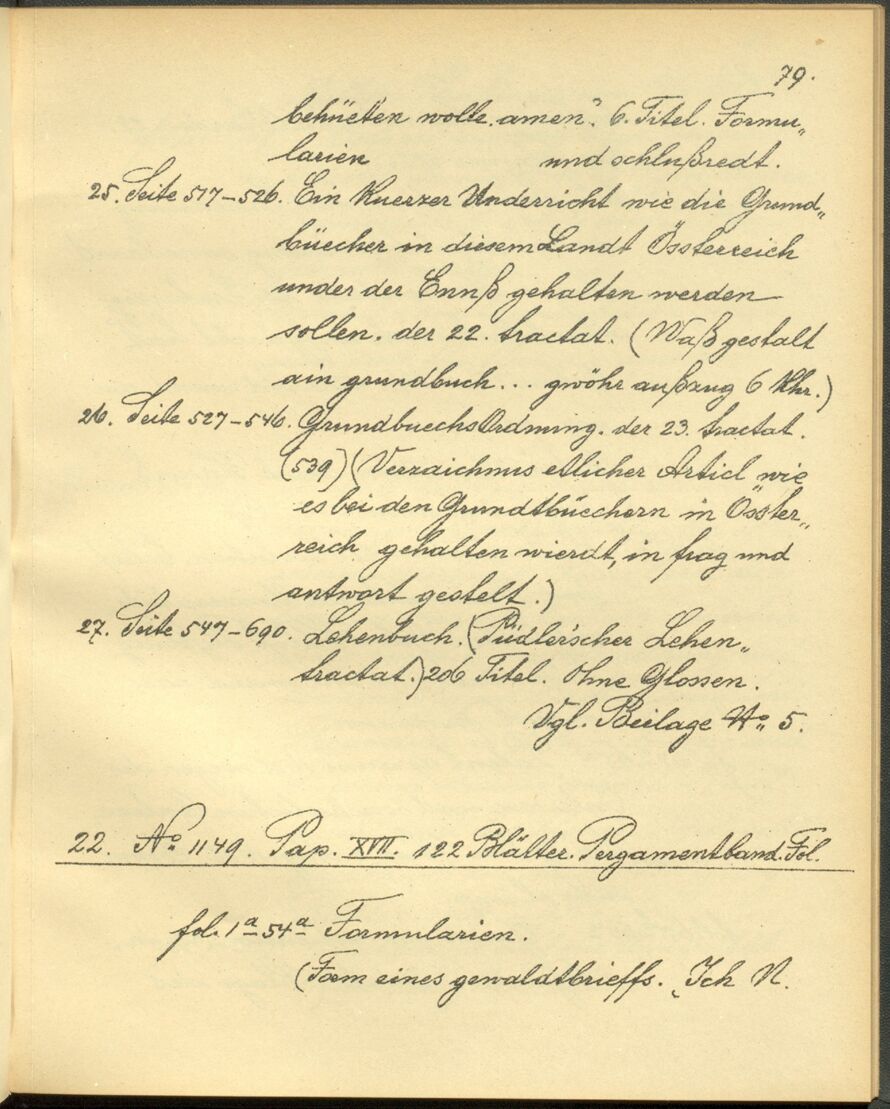 79.
behüeten wolle. amen". 6. Titel. Formu„
larien und schlußredt.
25. Seite 517–526. Ein Kuerzer Underricht wie die Grund„
büecher in diesem Landt Össterreich
under der Ennß gehalten werden
sollen. der 22. tractat. (Waß gestalt
ain grundbuch... gwöhr außzug 6 Khr.)
26. Seite 527–546. GrundbuechsOrdnung. der 23. tractat.
(539) (Verzaichnus etlicher Articl wie
es bei den Grundtbüechern inÖsster„
reich gehalten wierdt, in frag und
antwort gestelt.)
27. Seite 547–690. Lehenbuch. (Püdler'scher Lehen„
tractat.) 206 Titel. Ohne Glossen.
Vgl. Beilage No 5.
22. No 1149. Pap. XVII. 122 Blätter. Pergamentband. Fol.
fol. 1a 54a Formularien.
(Form eines gewaldtbrieffs. „Ich N.